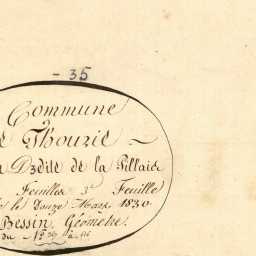 - 35
Commune
e Thourie
n Dedite de la Pillais
Feuilles 3e Feuille
le Douze Mars 1830
Bessin, Géomètre.
du N°